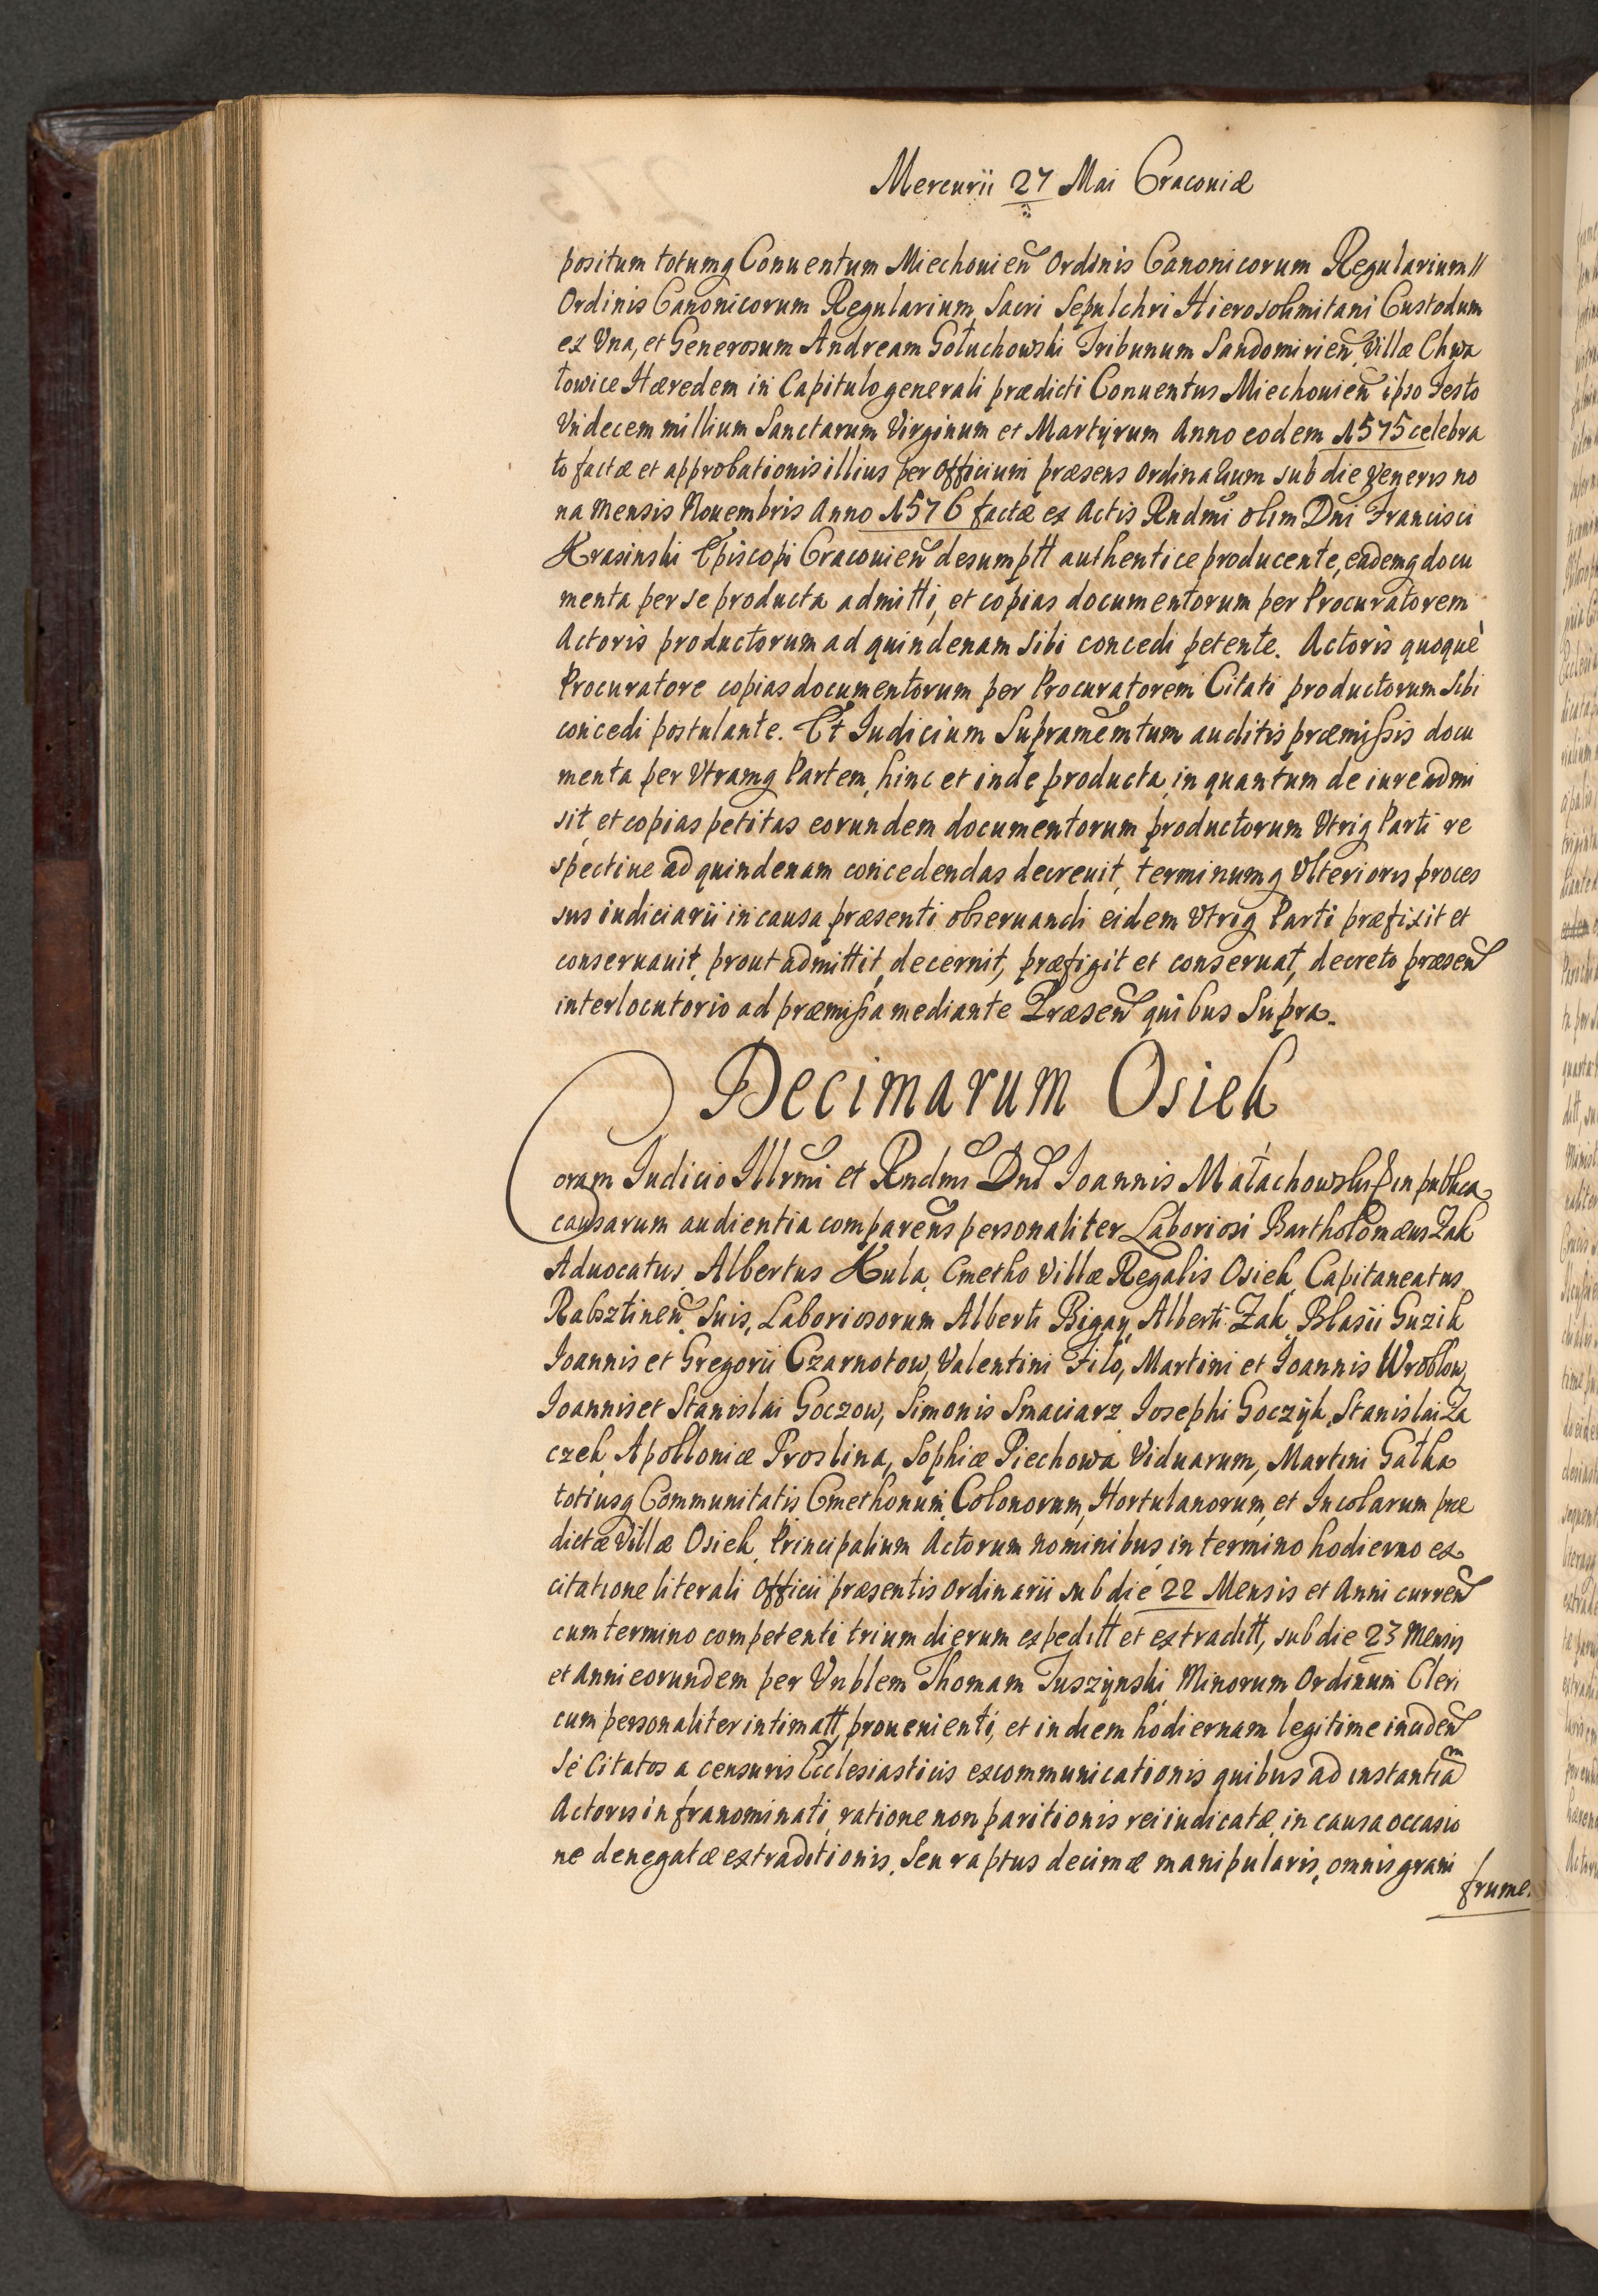 Mercurii 27 Mai Cracouiæ
positum totumq Conuentum Miechouien Ordinis Canonicorum Regularium //
Ordinis Canonicorum Regularium, Sacri Sepulchri Hierosolimitani Custodum
ex Vna, et Generosum Andream Gołuchowski Tribunum Sandomirien, Villæ Chwa
łowice Hæredem in Capitulo generali prædicti Conuentus Miechouien ipso Festo
Vndecem millium Sanctarum Virginum et Martyrum Anno eodem 1575 celebra
to factæ et approbationis illius per Officium præsens Ordinarium sub die Veneris no
na Mensis Nouembris Anno 1576 factæ ex Actis Rndmi olim Dni Francisci
Krasinski Episcopi Cracouien desumptt authentice producente, eademq docu
menta per se producta admitti, et copias documentorum per Procuratorem
Actoris productorum ad quindenam sibi concedi petente. Actoris quoquè
Procuratore copias documentorum per Procuratorem Citati productorum sibi
concedi postulante. Et Iudicium Supramemtum auditis præmissis docu
menta per Vtramq Partem, hinc et inde producta, in quantum de iure admi
sit, et copias petitas eorundem documentorum productorum Vtriq Parti re
spectiue ad quindenam concedendas decreuit, terminumq Vlterioris proces
sus iudiciarii in causa præsenti obseruandi eidem Vtriq Parti præfixit et
conseruauit, prout admittit, decernit, præfigit et conseruat, decreto præsen
interlocutorio ad præmissa mediante Præsen quibus Supra.
Decimarum Osiek
Coram Iudicio Illrmi et Rndmi Dni Ioannis Małachowski in publica
causarum audientia comparens personaliter Laboriosi Bartholomæus Zak
Aduocatus, Albertus Kula, Cmetho Villæ Regalis Osiek, Capitaneatus
Rabsztinen, Suis, Laboriosorum Alberti Bigay, Alberti Zak, Blasii Guzik
Ioannis et Gregorii Czarnotow, Valentini Filo, Martini et Ioannis Wroblow,
Ioannis et Stanislai Goczow, Simonis Smaciarz Iosephi Goczyk, Stanislai Za
czek, Apolloniæ Proslina, Sophiæ Piechowa Viduarum, Martini Gałka
totiusq Communitatis Cmethonum, Colonorum, Hortulanorum, et Incolarum præ
dictæ Villæ Osiek, Principalium Actorum nominibus, in termino hodierno ex
citatione literali Officii præsentis Ordinarii sub die 22 Mensis et Anni curren
cum termino competenti trium dierum expeditt et extraditt, sub die 23 Mensis
et Anni eorundem per Vnblem Thomam Tuszynski Minorum Ordinum Cleri
cum personaliter intimatt, prouenienti, et in diem hodiernam legitime inciden
se Citatos a censuris Ecclesiasticis excommunicationis quibus ad instantiam
Actoris infranominati, ratione non paritionis rei iudicatæ, in causa occasio
ne denegatæ extraditionis, seu raptus decimæ manipularis, omnis grani
frume.